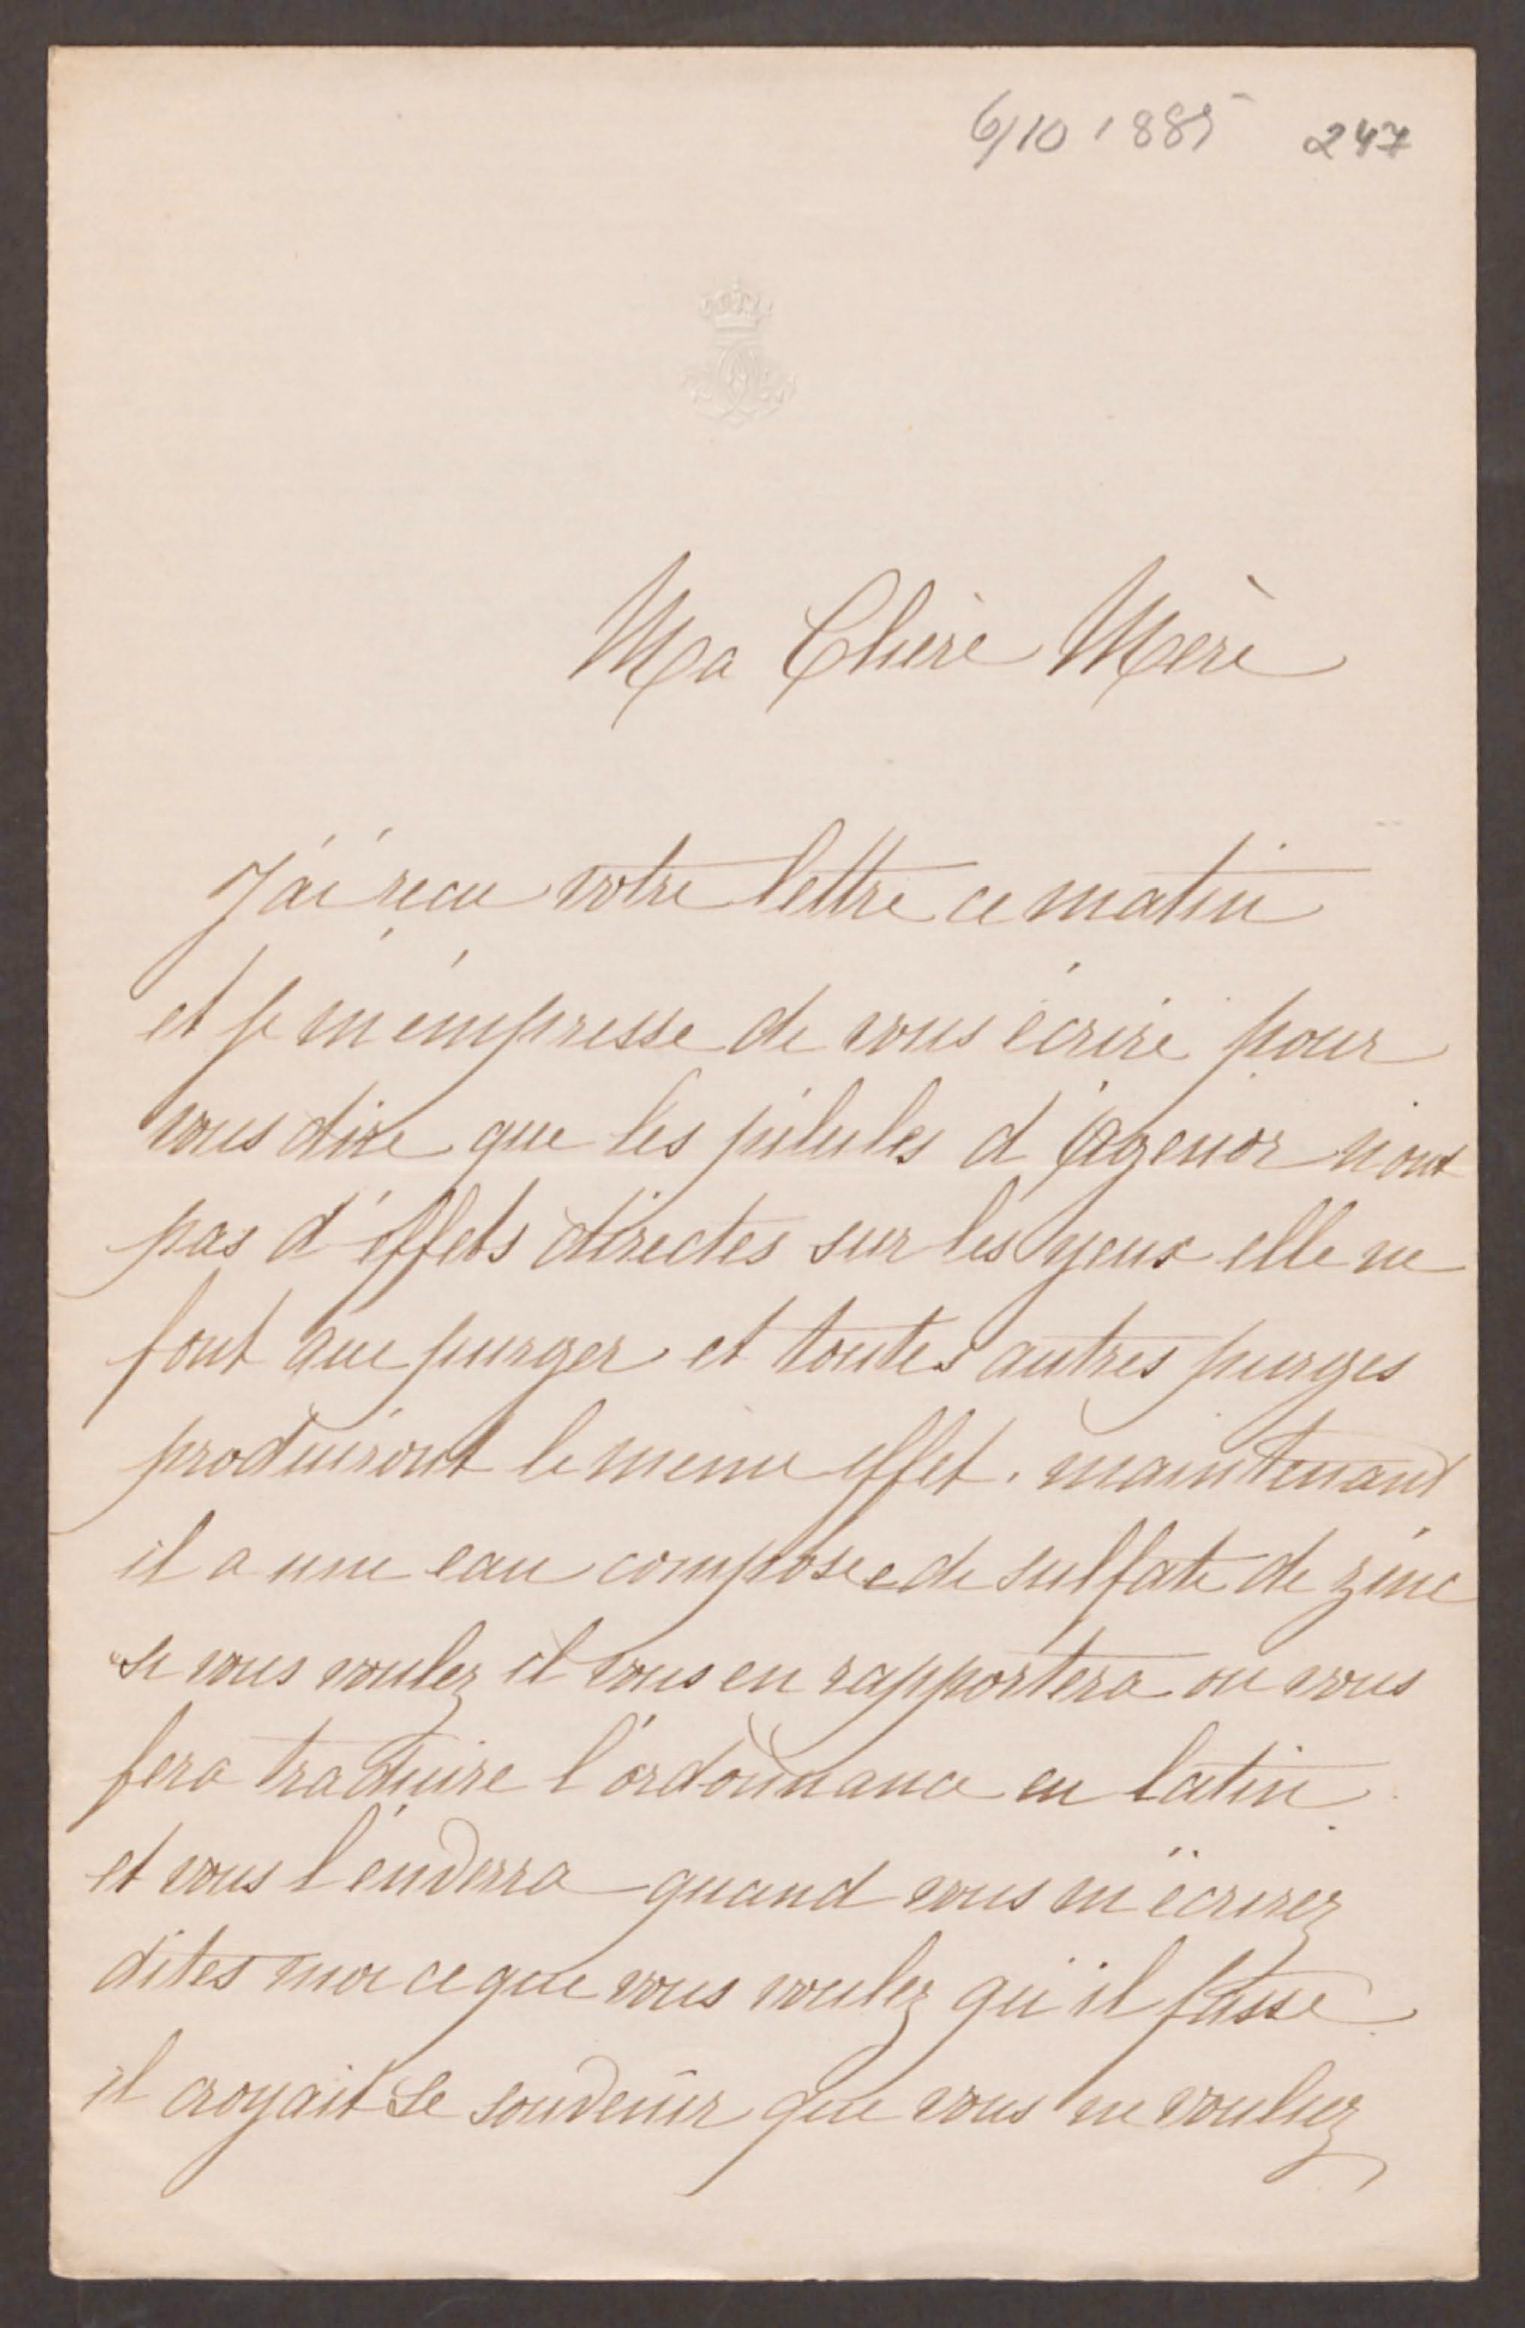 6/10 1885 247
Ma Chère Mère
J'ai reçu votre lettre ce matin
et je m'empresse de vous écrire pour
vous dire que les pilules d'Agenor n'ont
pas d'effets directes sur les yeux elle ne
font que purger et toutes autres purges
produiront le meme effet. maintenant
il a une eau composée de sulfate de zinc
si vous voulez il vous en rapportera ou vous
fera traduire l'ordonnance en latin
et vous l'enverra quand vous m'écrirez
dites moi ce que vous voulez qu'il fasse
il croyait se souvenir que vous ne vouliez